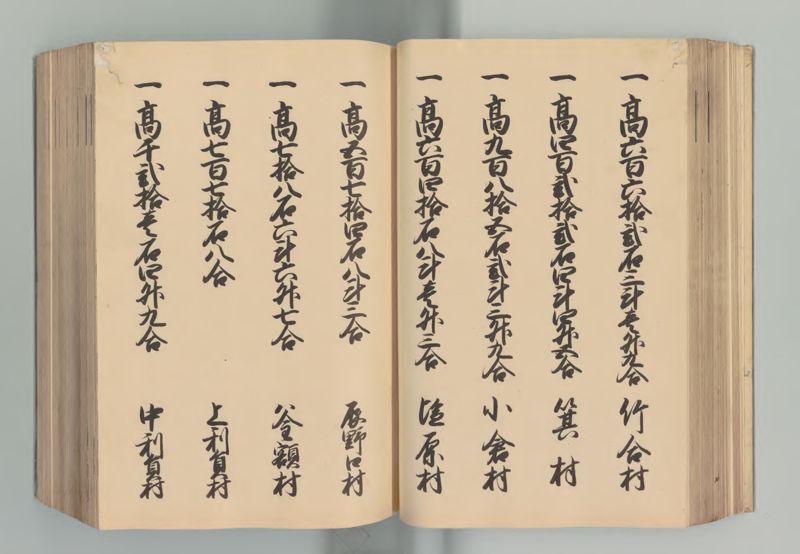 一高六百六拾弐石三斗壱升九合 竹合村
一高四百弐拾弐石四斗四升五合 箕村
一高九百八拾五石弐斗三升九合 小倉村
一高六百四拾石八斗壱升三合 塩原村
一高五百七拾四石八斗三合 辰野口村
一高七拾八石六斗六升七合 釜額村
一高七百七拾石八合 上利員村
一高千弐拾壱石四升九合 中利員村